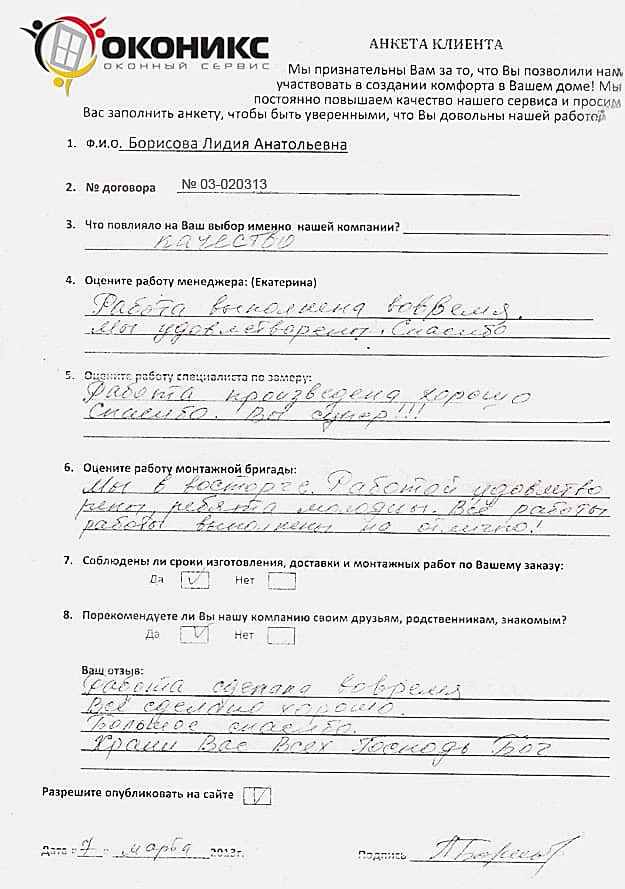 ОКОНИКС
ОКОННЫЙ СЕРВИС
АНКЕТА КЛИЕНТА
Мы признательны Вам за то, что Вы позволили нам
участвовать в создании комфорта в Вашем доме! Мы
постоянно повышаем качество нашего сервиса и просим
Вас заполнить анкету, чтобы быть уверенными, что Вы довольны нашей работой
1. Ф.И.О. Борисова Лидия Анатольевна
2. № договора № 03-020313
3. Что повлияло на Ваш выбор именно нашей компании?
качество
4. Оцените работу менеджера: (Екатерина)
Работа выполнена вовремя.
Мы удовлетворены. Спасибо
5. Оцените работу специалиста по замеру:
Работа произведена хорошо
Спасибо. Вы супер!!!
6. Оцените работу монтажной бригады:
Мы в восторге. Работой удовлетво
рены, ребята молодцы. Все работы
работы выполнены на отлично!
7. Соблюдены ли сроки изготовления, доставки и монтажных работ по Вашему заказу:
Да Нет
8. Порекомендуете ли Вы нашу компанию своим друзьям, родственникам, знакомым?
Да Нет
Ваш отзыв:
Работа сделана вовремя
Всё сделано хорошо.
Большое спасибо.
Храни Вас Всех Господь Бог
Разрешите опубликовать на сайте
Дата «7» марта 2013г. Подпись